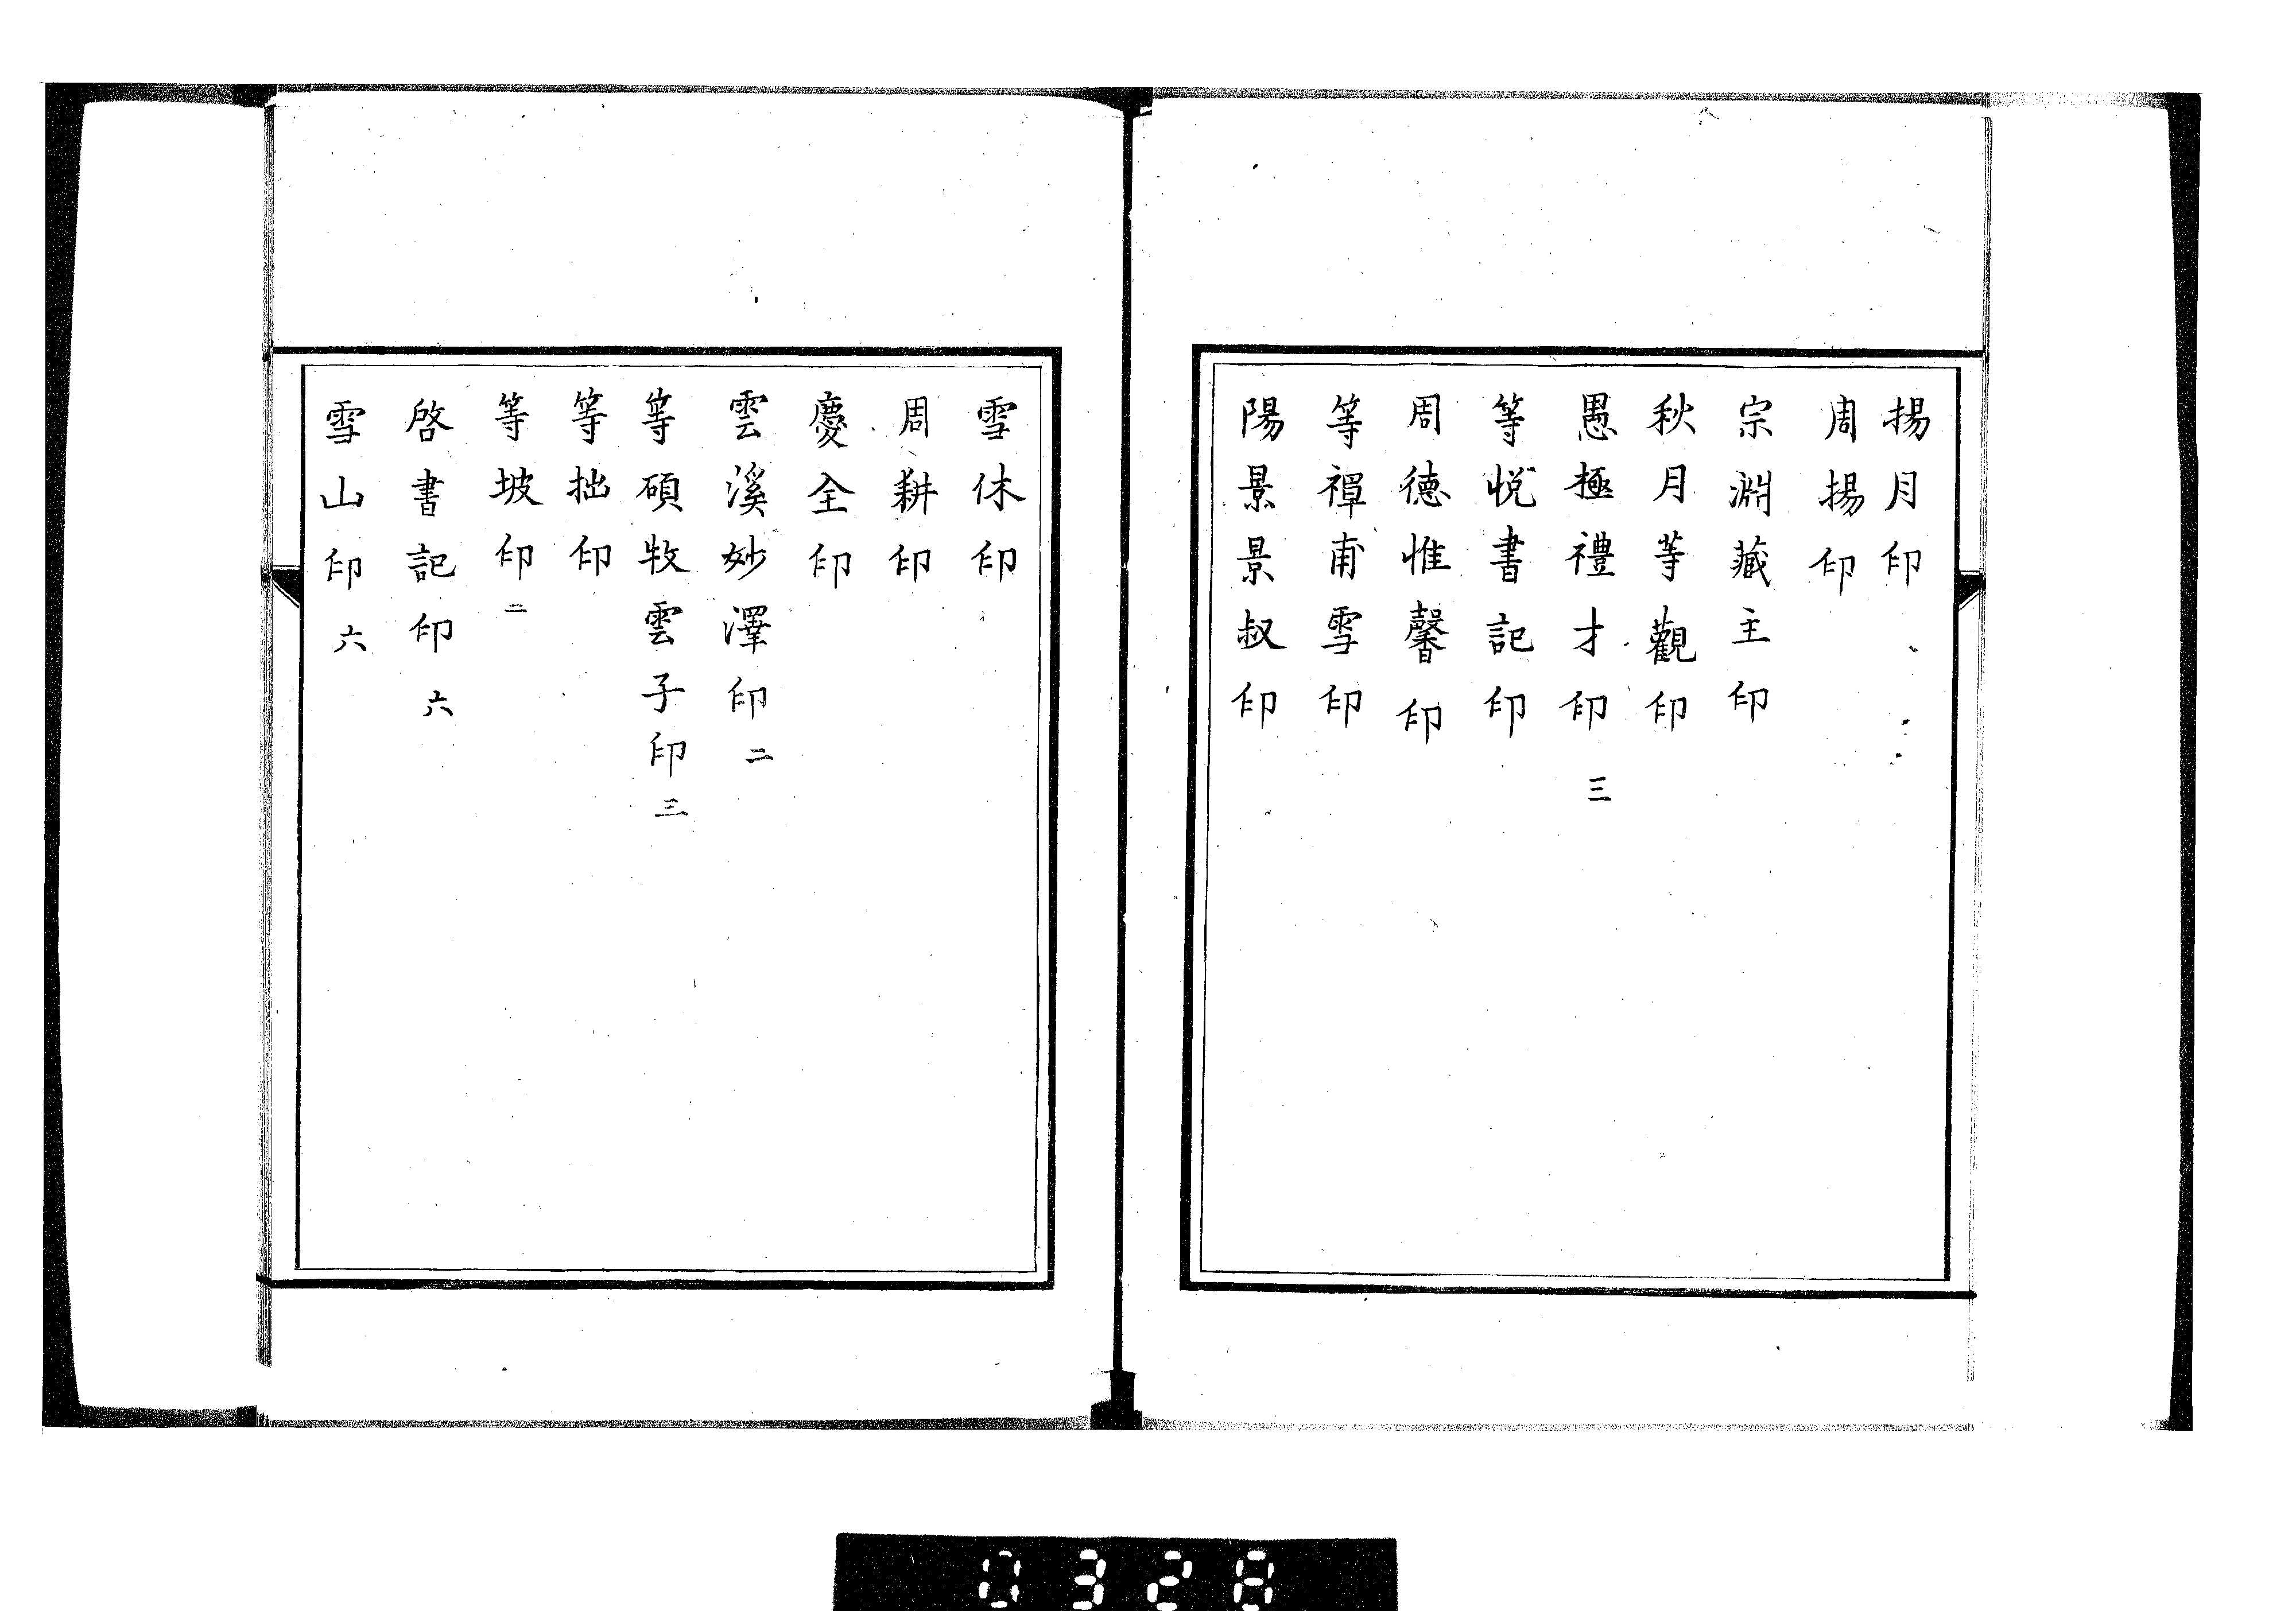 揚月印
周揚印
宗淵藏主印
秋月等觀印
愚極禮才印 三
等悦書記印
周德惟馨印
等禪甫雪印
陽景景叔印
雪休印
周耕印
慶全印
雲溪妙澤印 二
等碩牧雲子印 三
等拙印
等坡印 二
啓書記印 六
雪山印 六
0328